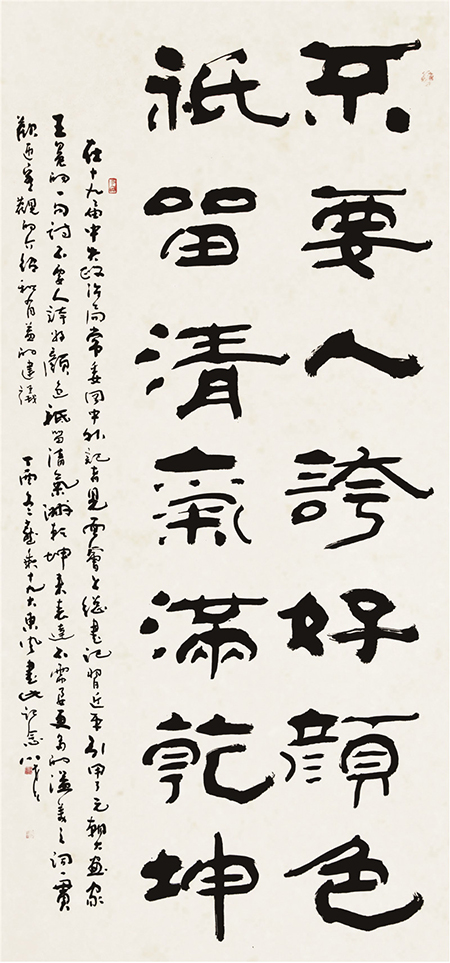 不要人誇好顏色
祇留清氣滿乾坤
在十九届中央政治局常委同中外記者見面會上總書記習近平引用了元朝大畫家
王冕的一句詩不要人誇好顏色祇留清氣滿乾坤來表達不需要更多的溢美之詞一貫
歡迎客觀的介紹和有益的建議 丁酉冬 十九大東風書此記念